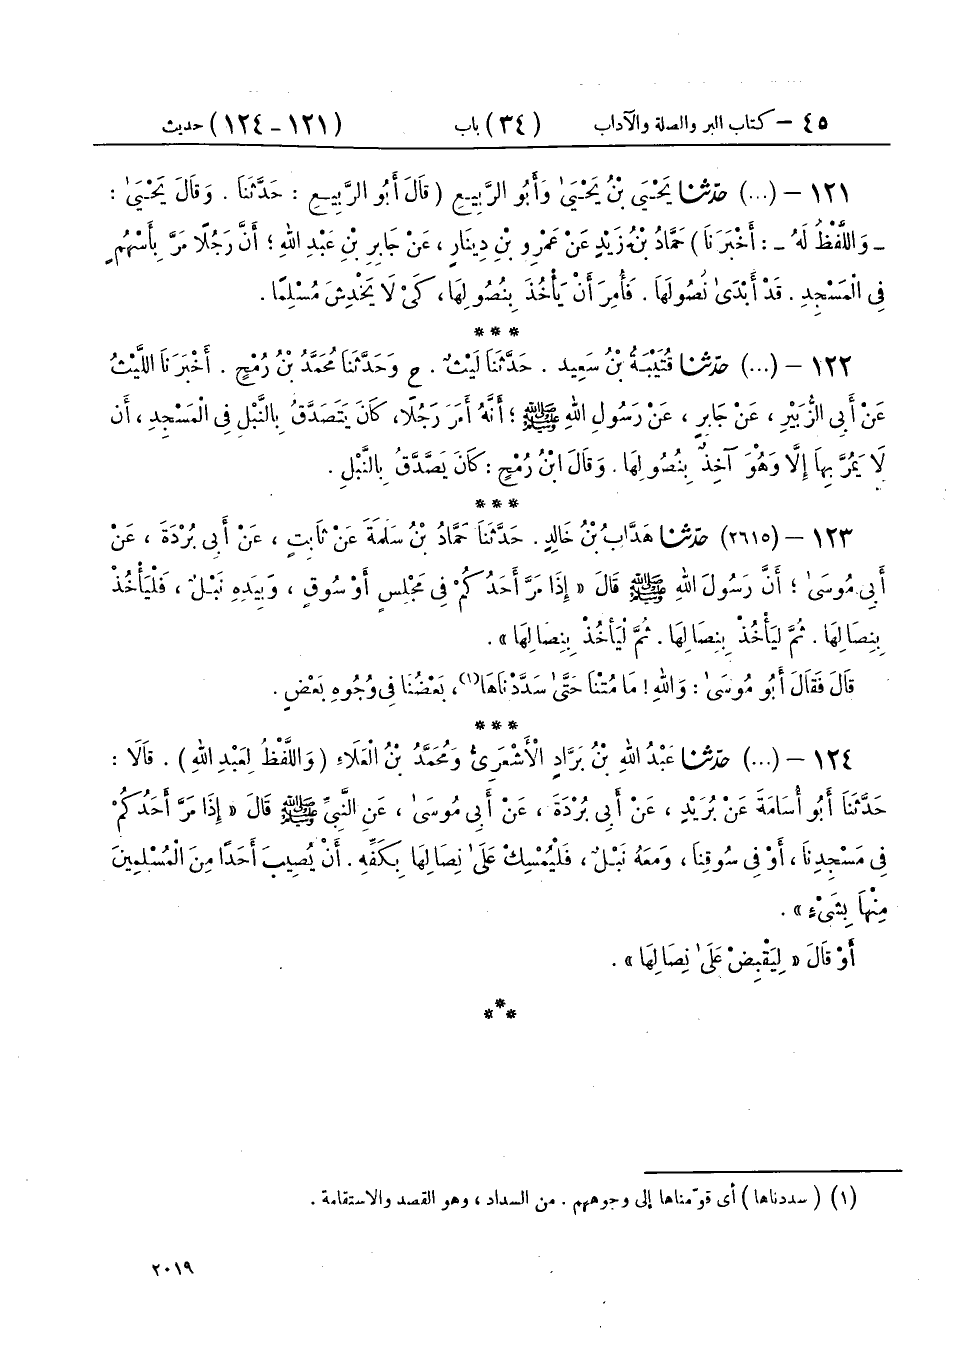 ٤٥ – كتاب البر والصلة والآداب (٣٤) باب (١٢١-١٢٤) حديث
١٢١ – (...) حَدَّثَنَا يَحْيَى بْنُ يَحْيَىٰ وَأَبُو الرَّبِيعِ ( قَالَ أَبُو الرَّبِيعِ : حَدَّثَنَا . وَقَالَ يَحْيَىٰ :
ـ وَاللَّفْظُ لَهُ ـ : أَخْبَرَنَا ) حَمَّادُ بْنُ زَيْدٍ عَنْ عَمْرِو بْنِ دِينَارٍ ، عَنْ جَابِرِ بْنِ عَبْدِ اللهِ ؛ أَنَّ رَجُلًا مَرَّ بِأَسْهُمٍ
فِي الْمَسْجِدِ . قَدْ أَبْدَىٰ نُصُولَهَا . فَأُمِرَ أَنْ يَأْخُذَ بِنُصُولِهَا ، كَىْ لَا يَخْدِشَ مُسْلِمًا .
***
١٢٢ – (...) حَدَّثَنَا قُتَيْبَةُ بْنُ سَعِيدٍ . حَدَّثَنَا لَيْثٌ . ح وَحَدَّثَنَا مُحَمَّدُ بْنُ رُمْحٍ . أَخْبَرَنَا اللَّيْثُ
عَنْ أَبِي الزُّبَيْرِ ، عَنْ جَابِرٍ ، عَنْ رَسُولِ اللهِ ﷺ ؛ أَنَّهُ أَمَرَ رَجُلًا ، كَانَ يَتَصَدَّقُ بِالنَّبْلِ فِي الْمَسْجِدِ ، أَنْ
لَا يَمُرَّ بِهَا إِلَّا وَهُوَ آخِذٌ بِنُصُولِهَا . وَقَالَ ابْنُ رُمْحٍ : كَانَ يَصَّدَّقُ بِالنَّبْلِ .
***
١٢٣ – (٢٦١٥) حَدَّثَنَا هَدَّابُ بْنُ خَالِدٍ . حَدَّثَنَا حَمَّادُ بْنُ سَلَمَةَ عَنْ ثَابِتٍ ، عَنْ أَبِي بُرْدَةَ ، عَنْ
أَبِي مُوسَىٰ ؛ أَنَّ رَسُولَ اللهِ ﷺ قَالَ « إِذَا مَرَّ أَحَدُكُمْ فِي مَجْلِسٍ أَوْ سُوقٍ ، وَبِيَدِهِ نَبْلٌ ، فَلْيَأْخُذْ
بِنِصَالِهَا . ثُمَّ لْيَأْخُذْ بِنِصَالِهَا . ثُمَّ لْيَأْخُذْ بِنِصَالِهَا » .
قَالَ فَقَالَ أَبُو مُوسَىٰ : وَاللهِ ! مَا مُتْنَا حَتَّىٰ سَدَّدْنَاهَا(١) ، بَعْضُنَا فِي وُجُوهِ بَعْضٍ .
***
١٢٤ – (...) حَدَّثَنَا عَبْدُ اللهِ بْنُ بَرَّادٍ الْأَشْعَرِيُّ وَمُحَمَّدُ بْنُ الْعَلَاءِ ( وَاللَّفْظُ لِعَبْدِ اللهِ ) . قَالَا :
حَدَّثَنَا أَبُو أُسَامَةَ عَنْ بُرَيْدٍ ، عَنْ أَبِي بُرْدَةَ ، عَنْ أَبِي مُوسَىٰ ، عَنِ النَّبِيِّ ﷺ قَالَ « إِذَا مَرَّ أَحَدُكُمْ
فِي مَسْجِدِنَا ، أَوْ فِي سُوقِنَا ، وَمَعَهُ نَبْلٌ ، فَلْيُمْسِكْ عَلَىٰ نِصَالِهَا بِكَفِّهِ . أَنْ يُصِيبَ أَحَدًا مِنَ الْمُسْلِمِينَ
مِنْهَا بِشَىْءٍ » .
أَوْ قَالَ « لِيَقْبِضْ عَلَىٰ نِصَالِهَا » .
***
(١) ( سددناها ) أى قوّمناها إلى وجوههم . من السداد ، وهو القصد والاستقامة .
٢٠١٩